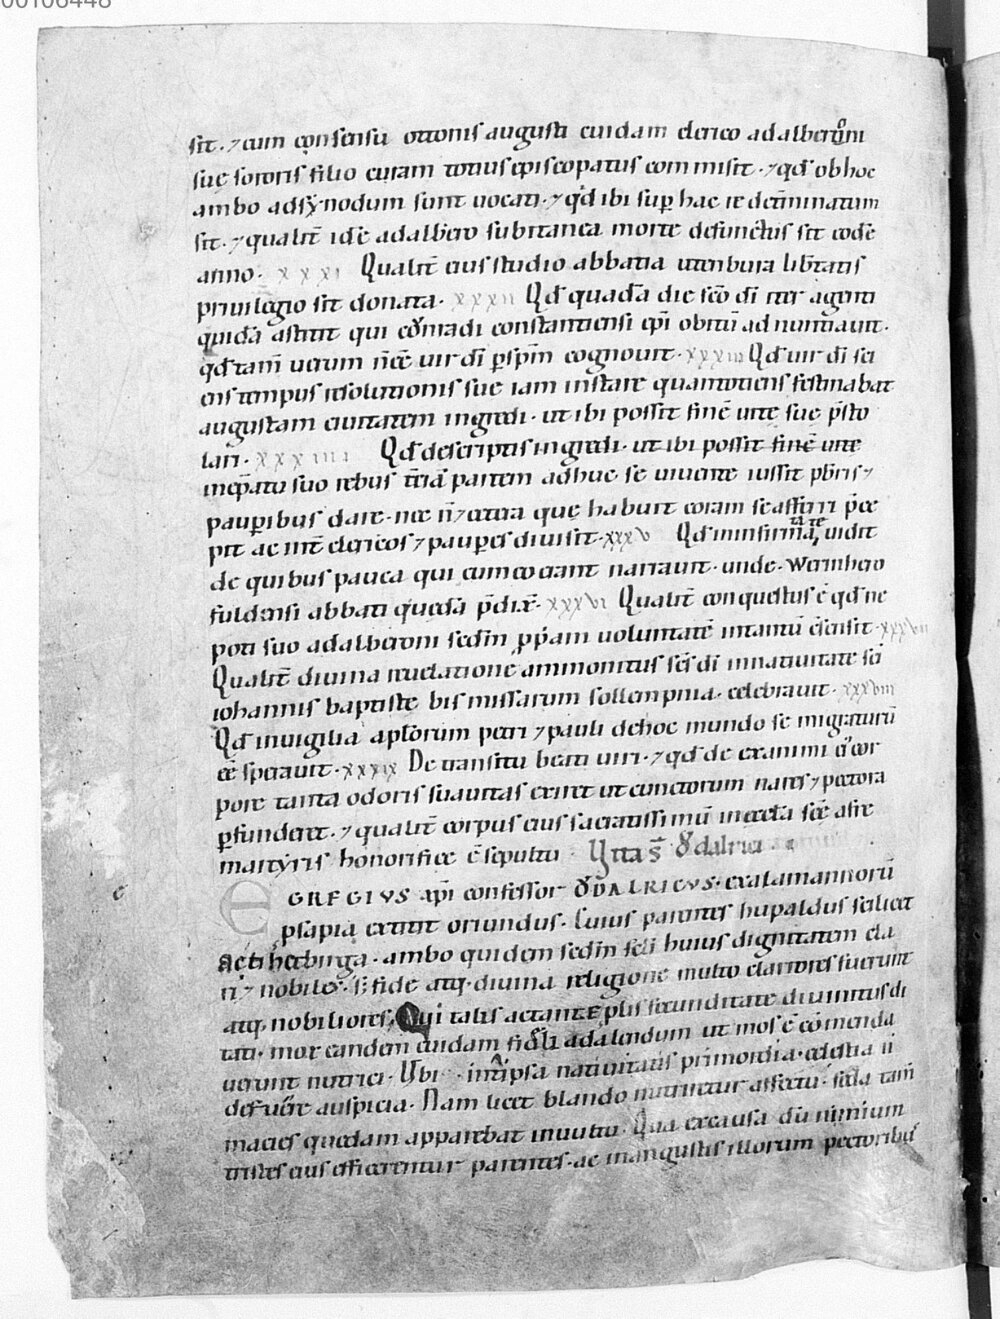 00106448
sit. ⁊ cum consensu ottonis augusti cuidam clerico adalberoni
suę sororis filio curam totius episcopatus commisit. ⁊ qđ ob hoc
ambo ad sẏnodum sunt uocati. ⁊ qđ ibi sup̄ hac re det̄minatum
sit. ⁊ qualit̄ idē adalbero subitanea morte defunctus sit eodē
anno. xxxi Qualit̄ eius studio abbatia utenbura lib̄tatis
priuilegio sit donata. xxxii Qđ quadā die sc̄o dī iter agenti
quidā astitit qui cōnradi constantiensi ep̄i obitū ad nuntiauit.
qđ tam̄ uerum n̄ eē uir dī p̄ sp̄m cognouit. xxxiii Qđ uir dī sci
ens tempus resolutionis sue iam instare quantotiens festinabat
augustam ciuitatem ingredi. ut ibi possit finē uitę suę p̄sto
lari. xxxiiii Qđ descriptis ingredi. ut ibi possit finē uitę
in ep̄atu suo rebus t̄ciā partem adhuc se uiuente iussit p̄bris ⁊
paup̄ibus dare. nec n̄ ⁊ cetera quę habuit coram se afferri p̄ce
pit ac int̄ clericos ⁊ pauperes diuisit. xxxv Qđ in infirmitate uidit
de quibus pauca qui cum eo erant narrauit. unde. Werinhero
fuldensi abbati quędā p̄dix̄. xxxvi Qualit̄ conquestus ē qđ ne
poti suo adalberoni sedm̄ pp̄am uoluntatē intantū c̄sensit. xxxvii
Qualit̄ diuina reuelatione ammonitus scs̄ dī in natiuitate sc̄i
iohannis baptistę bis missarum sollempnia. celebrauit. xxxviii
Qđ in uigilia aplōrum petri ⁊ pauli de hoc mundo se migraturū
eē sperauit. xxxix De transitu beati uiri. ⁊ qđ de exanimi ei' cor
pore tanta odoris suauitas exiret ut cunctorum nares ⁊ pectora
p̄funderet. ⁊ qualit̄ corpus eius sacratissimū in ecc̄la sc̄ę afrę
martẏris honorifice ē sepultū Uita S̄ Ǒdalrici
EGREGIVS xp̄i confessor ǑDALRICVS. ex alamannorū
p̄sapia extitit oriundus. Cuius parentes hupaldus scilicet
ac thietbirga. ambo quidem sedm̄ sc̄li huius dignitatem cla
ri ⁊ nobiles. s; fide atq; diuina religione multo clariores fuerunt
atq; nobiliores. Qui talis ac tantę p̄lis fecunditate diuinitus di
tati. mox eandem cuidam fideli ad alendum ut mos ē cōmenda
uerunt nutrici. Ubi int̄ ipsa natiuitatis primordia. celestia n̄
defuēre auspicia. Nam licet blando nutriretur affectu. seda tam̄
macies quędam apparebat in uultu. Qua ex causa dū nimium
tristes eius efficerentur parentes. ac in angustiis illorum pectoribus